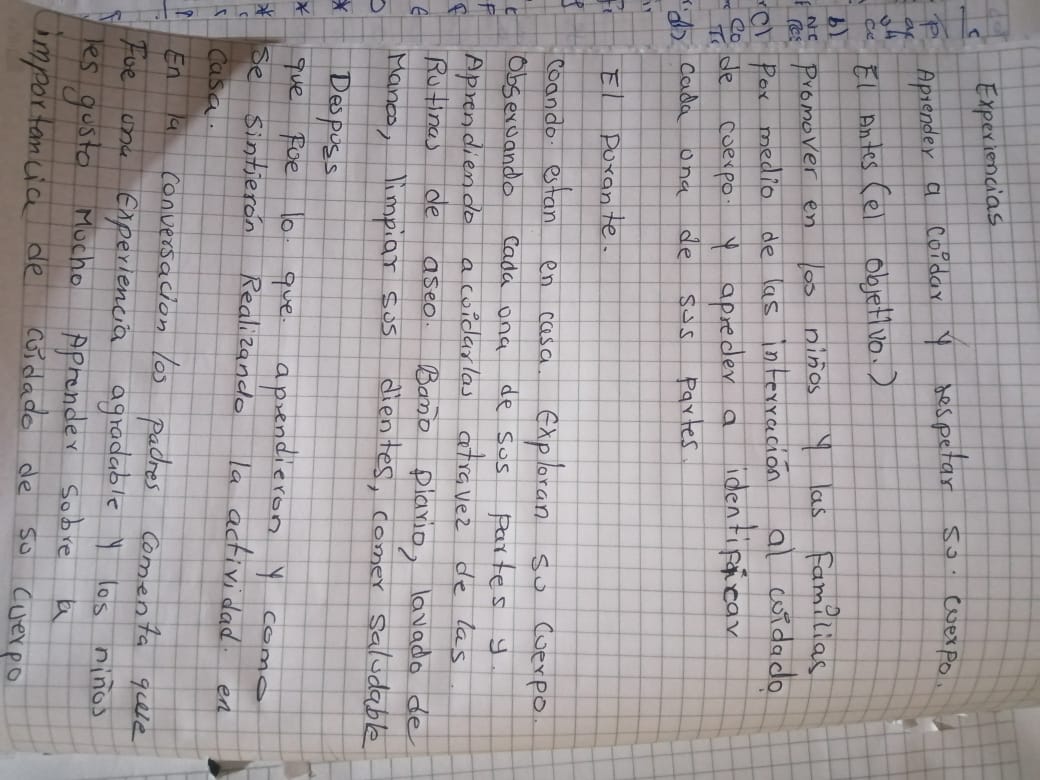 Experiencias
Aprender a cuidar y respetar su. cuerpo.
El Antes (el objetivo.)
Promover en los niños y las Familias
Por medio de las interración al cuidado
de cuerpo. y apreder a identificar
cada una de sus partes.
El Durante.
Cuando. estan en casa. Exploran su cuerpo.
Observando cada una de sus partes y.
Aprendiendo a cuidarlas atravez de las.
Rutinas de aseo. Baño Diario, lavado de
Manos, limpiar sus dientes, comer saludable
Despuss
que fue lo. que. aprendieron y como
se sintierón Realizando la actividad. en
casa.
En la conversacion los padres comenta que
Fue una Experiencia agradable y los niños
les gusto Mucho Aprender sobre la
importancia de cuidado de su cuerpo